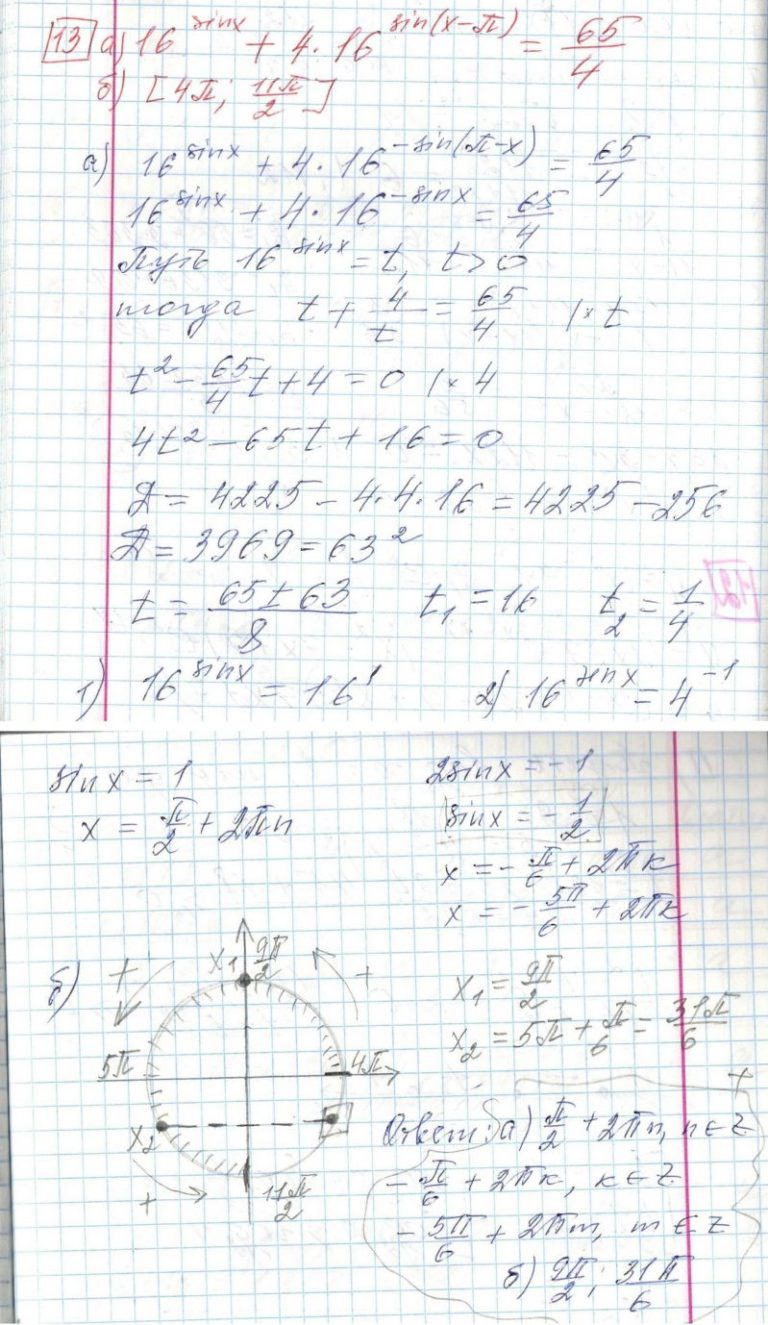 13 а) 16^sinx + 4·16^sin(x-π) = 65/4
б) [4π; 11π/2]
а) 16^sinx + 4·16^-sin(π-x) = 65/4
16^sinx + 4·16^-sinx = 65/4
Путь 16^sinx = t, t>0
тогда t + 4/t = 65/4 |×t
t² - 65/4 t + 4 = 0 |×4
4t² - 65t + 16 = 0
D = 4225 - 4·4·16 = 4225 - 256
D = 3969 = 63²
t = (65±63)/8 t₁ = 16 t₂ = 1/4
1) 16^sinx = 16¹ 2) 16^sinx = 4^-1
sinx = 1
x = π/2 + 2πn
2sinx = -1
sinx = -1/2
x = -π/6 + 2πk
x = -5π/6 + 2πk
б)
x1 9π/2
+ +
5π 4π
x2
+ 11π/2
x₁ = 9π/2
x₂ = 5π + π/6 = 31π/6
+
Ответ: а) π/2 + 2πn, n∈Z
-π/6 + 2πk, k∈Z
-5π/6 + 2πm, m∈Z
б) 9π/2; 31π/6